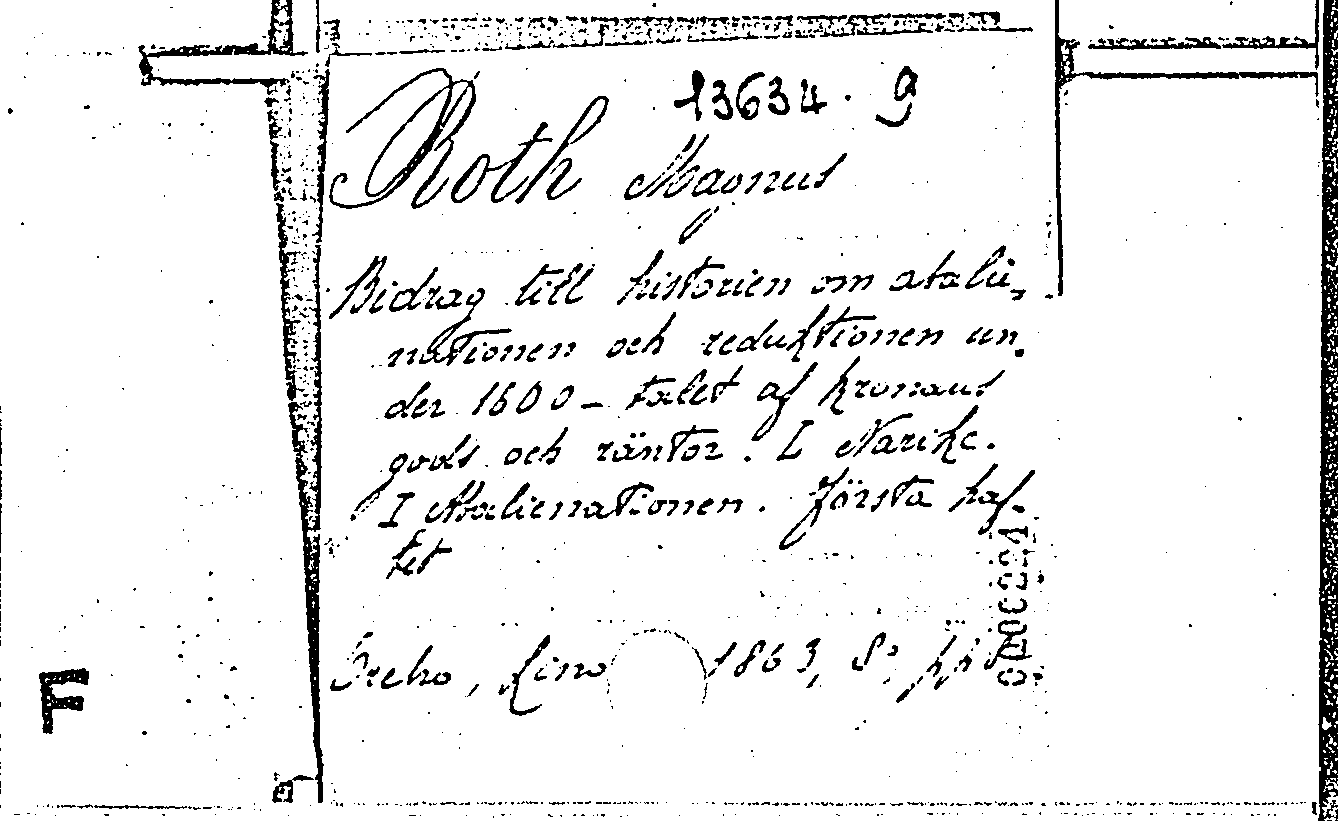 13634. 9
Roth Magnus
Bidrag till historien om abalie-
nationen och reduktionen un-
der 1600-talet af kronans
gods och räntor. I Narike.
I Abalienationen. Första haf-
tet
1863, 8°,
F